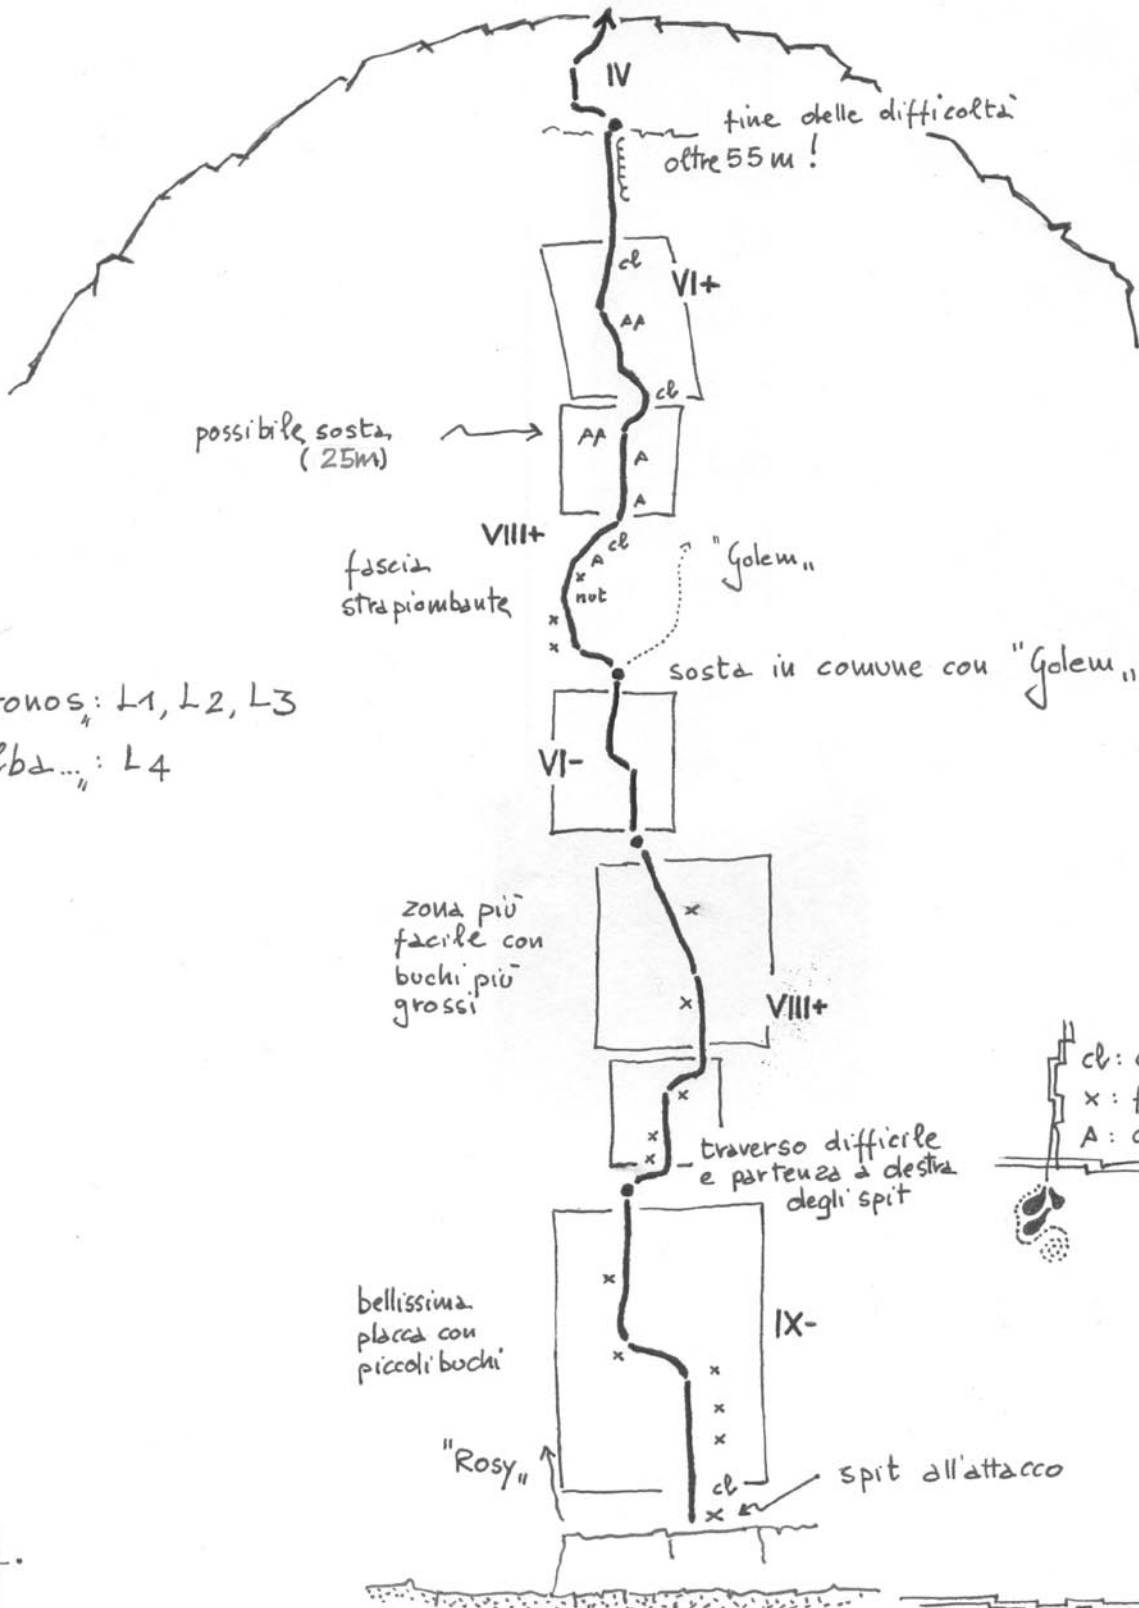 IV
fine delle difficoltà
oltre 55 m !
cl
VI+
AA
cl
possibile sosta
( 25m)
AA
A
A
VIII+
cl
A
x
nut
x
x
fascia
strapiombante
"Golem"
sosta in comune con "Golem"
onos": L1, L2, L3
lba...": L4
VI-
zona più
facile con
buchi più
grossi
x
x
VIII+
x
x
x
traverso difficile
e partenza a destra
degli spit
cl:
x:
A:
bellissima
placca con
piccoli buchi
x
x
x
x
x
IX-
"Rosy"
cl
x
spit all'attacco